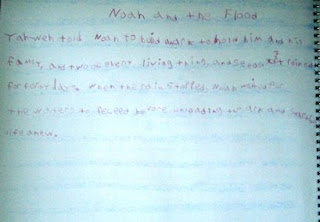 Noah and the Flood
Yahweh told Noah to build an ark to hold him and his
family, and two of every living thing, and seeds. It rained
for forty days. When the rain stopped, Noah waited for
the waters to recede before unloading the ark and
life anew.